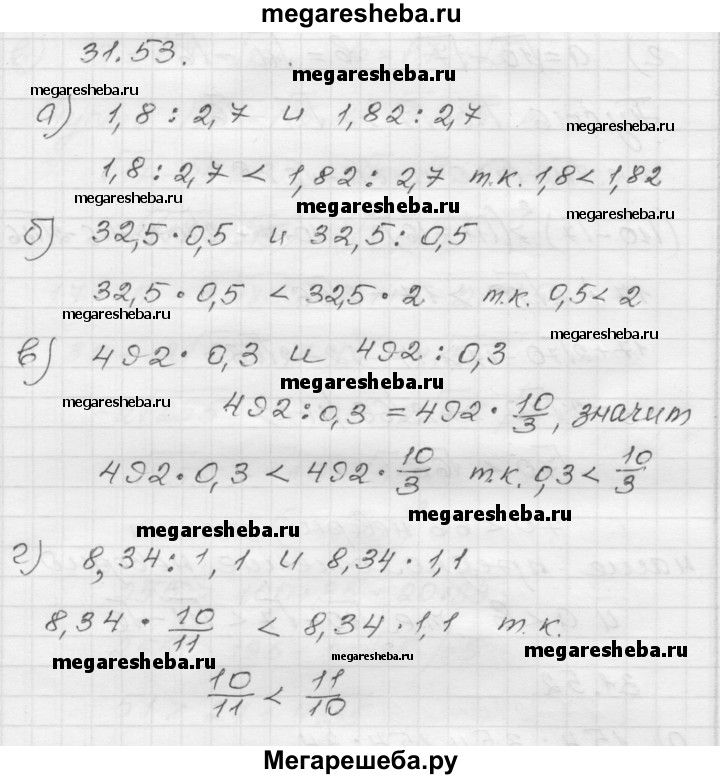 megaresheba.ru
31.53.
megaresheba.ru
megaresheba.ru
а) 1,8 : 2,7 и 1,82 : 2,7
megaresheba.ru
1,8 : 2,7 < 1,82 : 2,7 т.к. 1,8 < 1,82
megaresheba.ru
megaresheba.ru
megaresheba.ru
б) 32,5 · 0,5 и 32,5 : 0,5
32,5 · 0,5 < 32,5 · 2 т.к. 0,5 < 2
megaresheba.ru
megaresheba.ru
в) 492 · 0,3 и 492 : 0,3
megaresheba.ru
megaresheba.ru
492 : 0,3 = 492 · 10/3, значит
492 · 0,3 < 492 · 10/3 т.к. 0,3 < 10/3
megaresheba.ru
megaresheba.ru
г) 8,34 : 1,1 и 8,34 · 1,1
8,34 · 10/11 < 8,34 · 1,1 т.к.
megaresheba.ru
megaresheba.ru
megaresheba.ru
10/11 < 11/10
Мегарешеба.ру